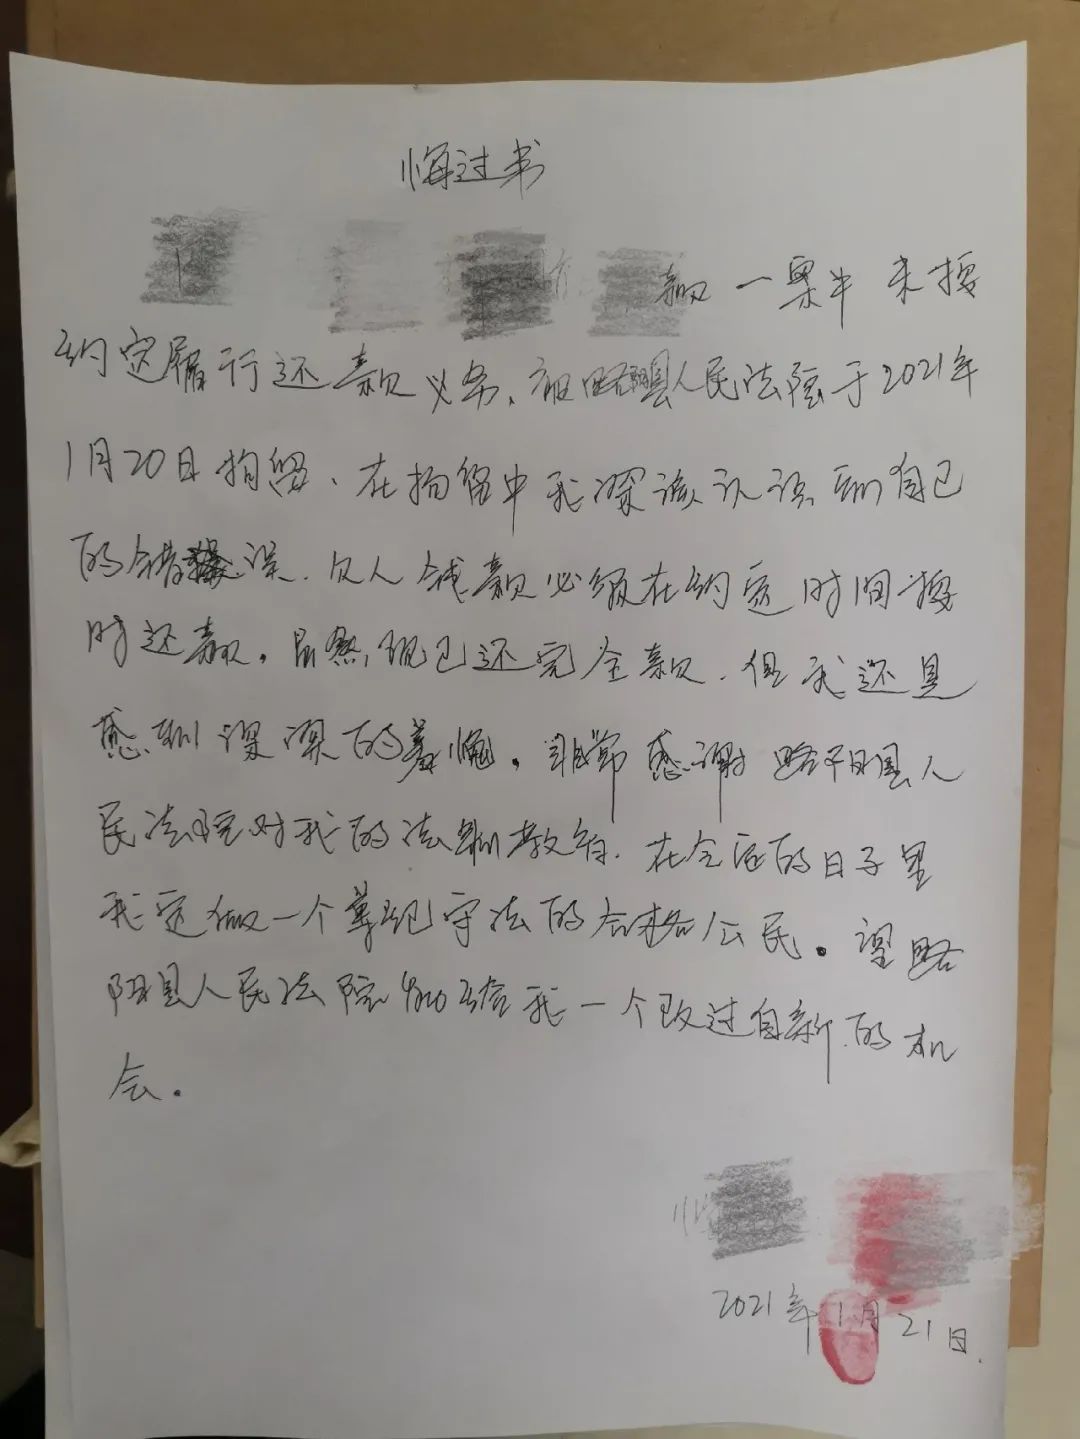 悔过书
款一案中未按
约定履行还款义务、被略阳县人民法院于2021年
1月20日拘留、在拘留中我深该认识到自己
的错误.欠人钱款必须在约定时间按
时还款。虽然,现已还完全款.但我还是
感到深深的羞愧。非常感谢略阳县人
民法院对我的法制教育.在今后的日子里
我定做一个尊纪守法的合格公民。望略
阳县人民法院能给我一个改过自新.的机
会.
2021年1月21日.